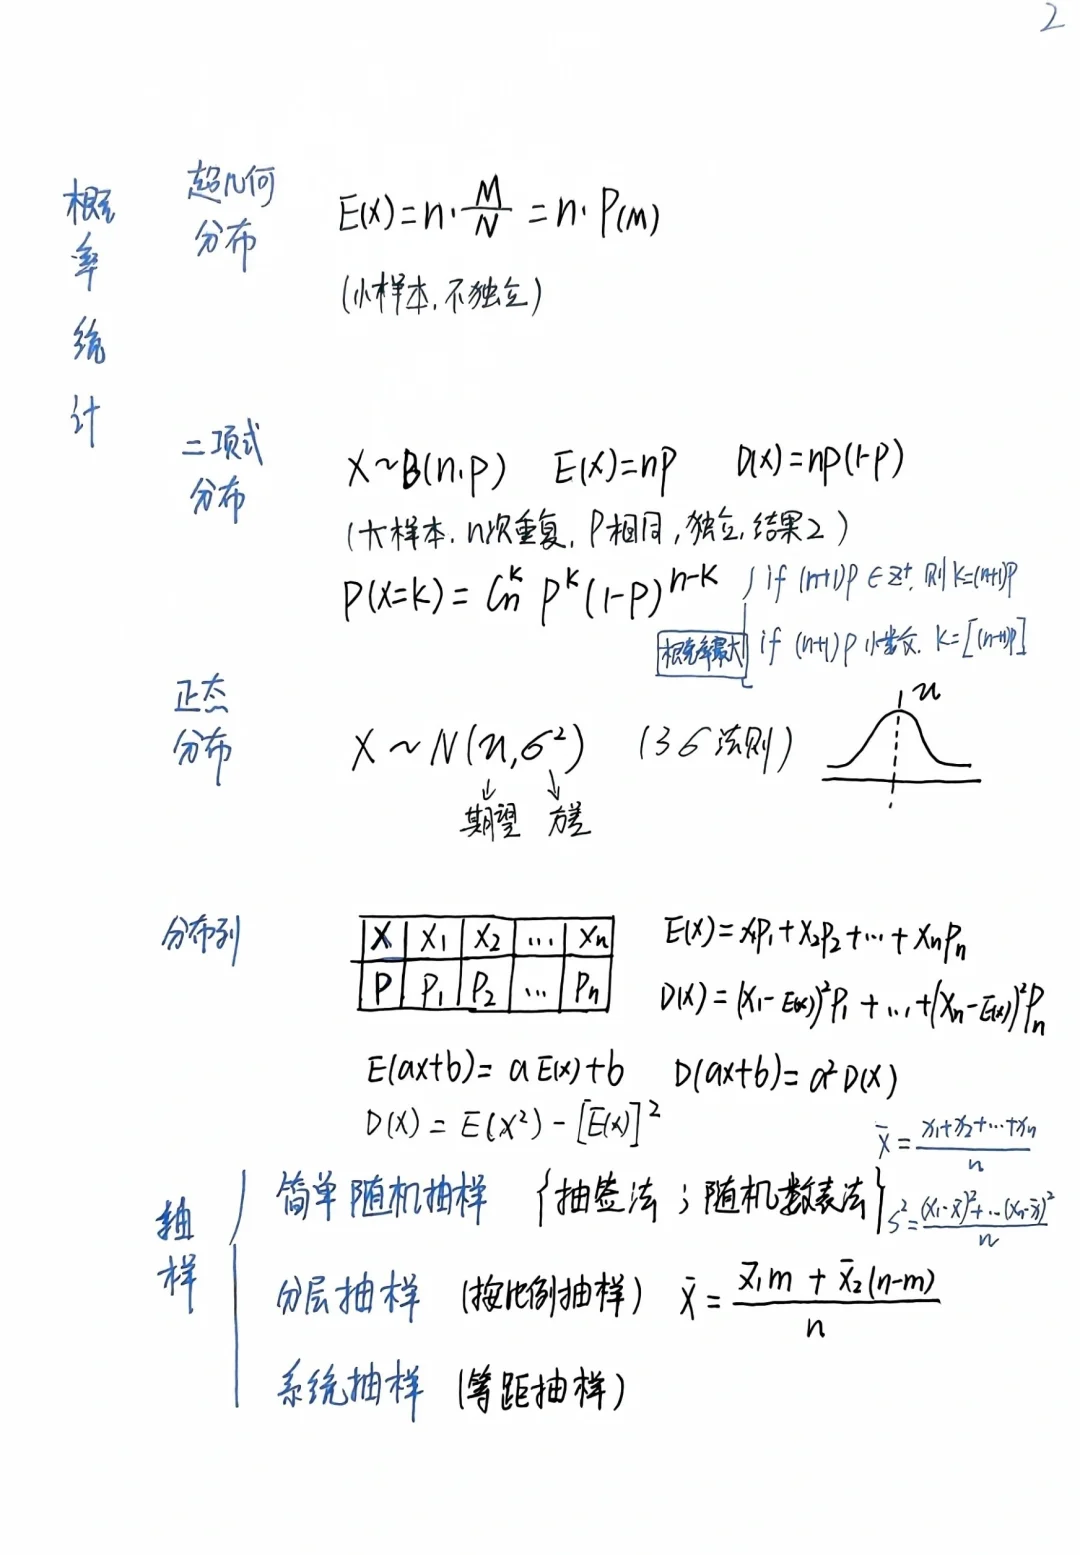 2
概率统计
超几何分布
E(X)=n·M/N=n·P(M)
(小样本.不独立)
二项式分布
X~B(n.p) E(X)=np D(X)=np(1-p)
(大样本.n次重复.P相同,独立,结果2)
P(X=k)=Cₙᵏ pᵏ(1-p)ⁿ⁻ᵏ
概率最大
if (n+1)P∈Z⁺,则K=(n+1)P
if (n+1)P小数.K=[(n+1)P]
正态分布
X~N(u,σ²) (3σ法则)
u
期望 方差
分布列
X X₁ X₂ ... Xn
P P₁ P₂ ... Pn
E(X)=x₁P₁+X₂P₂+…+XnPn
D(X)=(X₁-E(x))²P₁+...+(Xn-E(x))²Pn
E(ax+b)=aE(x)+b D(ax+b)=a²D(X)
D(X)=E(X²)-[E(X)]²
x̄=(x₁+x₂+…+xn)/n
抽样
简单随机抽样 {抽签法;随机数表法}
S²=((x₁-x̄)²+…(xn-x̄)²)/n
分层抽样 (按比例抽样) x̄=(x̄₁m+x̄₂(n-m))/n
系统抽样 (等距抽样)